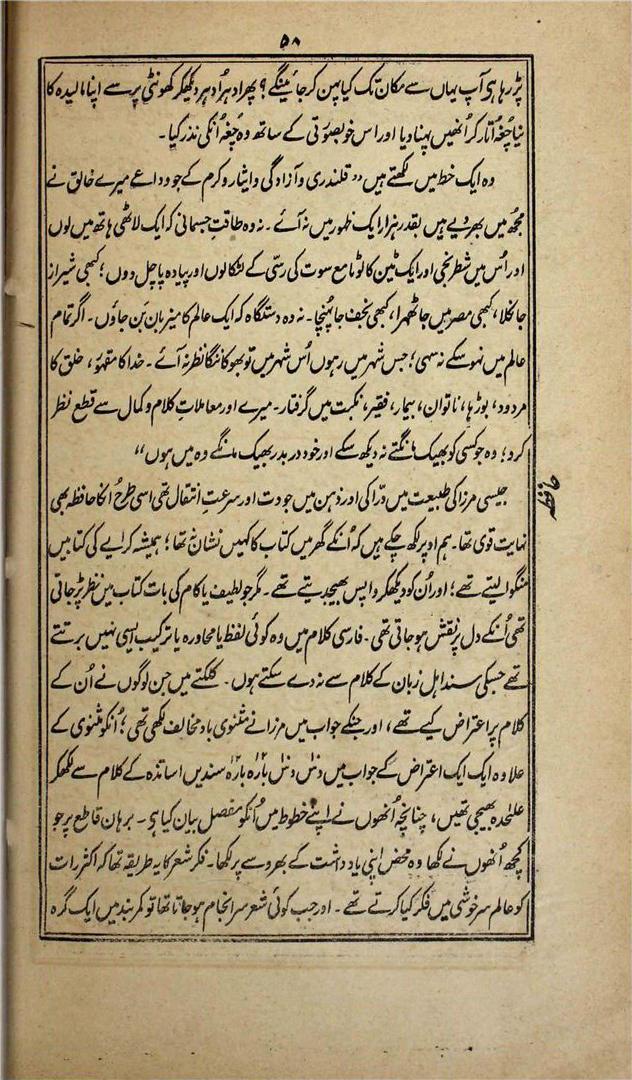 ۵۸
پڑ رہا ہی آپ یہاں سے مکان تک کیا پہن کر جائینگے؟ پھر ادہر اُدہر دیکھکر کھونٹی پر سے اپنا مالیدہ کا
نیا چُغہ اُتار کر اُنھیں پہنا دیا اور اس خوبصورتی کے ساتھ وہ چُغہ اُنکی نذر کیا۔
وہ ایک خط میں لکھتے ہیں ”قلندری و آزادگی و ایثار و کرم کے جو دواعی میرے خالق نے
مجھ میں بھر دیے ہیں بقدر ہزار ایک ظہور میں نہ آئے۔ نہ وہ طاقتِ جسمانی کہ ایک لاٹھی ہاتھ میں لوں
اور اُس میں شطرنجی اور ایک ٹین کا لوٹا مع سوت کی رسّی کے لٹکا لوں اور پیادہ پا چل دوں؛ کبھی شیراز
جا نکلا، کبھی مصر میں جا ٹھہرا، کبھی نجف جا پہُنچا۔ نہ وہ دستگاہ کہ ایک عالم کا میزبان بَن جاؤں۔ اگر تمام
عالم میں نہو سکے نہ سہی؛ جس شہر میں رہوں اُس شہر میں تو بھوکا ننگا نظر نہ آئے۔ خدا کا مقہور، خلق کا
مردود، بوڑھا، ناتوان، بیمار، فقیر، نکبت میں گرفتار۔ میرے اور معاملاتِ کلام و کمال سے قطع نظر
کرو؛ وہ جو کسی کو بھیک مانگتے نہ دیکھ سکے اور خود در بدر بھیک مانگے وہ میں ہوں“
حافظہ
جیسی مرزا کی طبیعت میں درّاکی اور ذہن میں جودت اور سرعتِ انتقال تھی اسی طرح اُنکا حافظہ بھی
نہایت قوی تھا۔ ہم اوپر لکھ چکے ہیں کہ اُنکے گھر میں کتاب کا کہیں نشان نہ تھا؛ ہمیشہ کرایے کی کتابیں
منگوا لیتے تھے؛ اور اُن کو دیکھکر واپس بھیجدیتے تھے۔ مگر جو لطیف یا کام کی بات کتاب میں نظر پڑ جاتی
تھی اُنکے دل پر نقش ہو جاتی تھی۔ فارسی کلام میں وہ کوئی لفظ یا محاورہ یا ترکیب ایسی نہیں برتتے
تھے جسکی سند اہلِ زبان کے کلام سے نہ دے سکتے ہوں۔ کلکتے میں جن لوگوں نے اُن کے
کلام پر اعتراض کیے تھے، اور جنکے جواب میں مرزا نے مثنوی باد مخالف لکھی تھی؛ اُنکو مثنوی کے
علاوہ ایک ایک اعتراض کے جواب میں دس دس بارہ بارہ سندیں اساتذہ کے کلام سے لکھکر
علٰحدہ بھیجی تھیں، چنانچہ اُنھوں نے اپنے خطوط میں اُنکو مفصل بیان کیا ہی۔ برہان قاطع پر جو
کچھ اُنھوں نے لکھا وہ محض اپنی یاد داشت کے بھروسے پر لکھا۔ فکرِ شعر کا یہ طریقہ تھا کہ اکثر رات
کو عالمِ سرخوشی میں فکر کیا کرتے تھے۔ اور جب کوئی شعر سرانجام ہو جاتا تھا تو کمر بند میں ایک گرہ